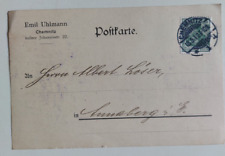 Emil Uhlmann
Chemnitz
Postkarte.
An
Herrn Albert Löser,
in
Annaberg i. E.